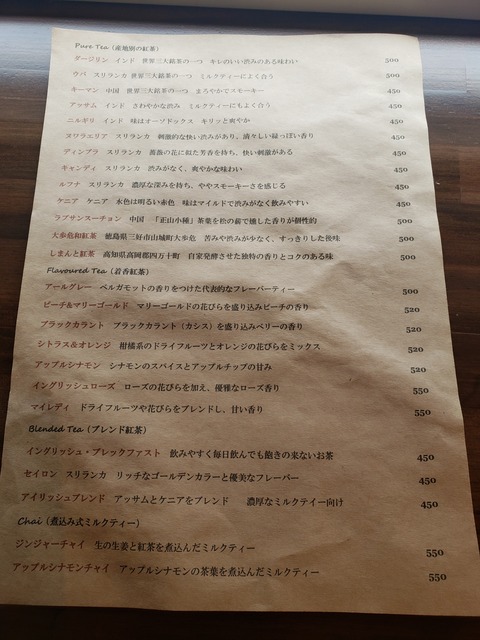 Pure Tea（産地別の紅茶）
ダージリン　インド　世界三大銘茶の一つ　キレのいい渋みのある味わい　500
ウバ　スリランカ　世界三大銘茶の一つ　ミルクティーによく合う　500
キーマン　中国　世界三大銘茶の一つ　まろやかでスモーキー　500
アッサム　インド　さわやかな渋み　ミルクティーにもよく合う　450
ニルギリ　インド　味はオーソドックス　キリッと爽やか　450
ヌワラエリア　スリランカ　刺激的な快い渋みがあり、清々しい緑っぽい香り　450
ディンブラ　スリランカ　薔薇の花に似た芳香を持ち、快い刺激がある　450
キャンディ　スリランカ　渋みがなく、爽やかな味わい　450
ルフナ　スリランカ　濃厚な深みを持ち、ややスモーキーさを感じる　450
ケニア　ケニア　水色は明るい赤色　味はマイルドで渋みがなく飲みやすい　450
ラプサンスーチョン　中国　「正山小種」茶葉を松の薪で燻した香りが個性的　500
大歩危和紅茶　徳島県三好市山城町大歩危　苦みや渋みが少なく、すっきりした後味　500
しまんと紅茶　高知県高岡郡四万十町　自家発酵させた独特の香りとコクのある味　500
Flavoured Tea（着香紅茶）
アールグレー　ベルガモットの香りをつけた代表的なフレーバーティー　500
ピーチ&マリーゴールド　マリーゴールドの花びらを盛り込みピーチの香り　520
ブラックカラント　ブラックカラント（カシス）を盛り込みベリーの香り　520
シトラス&オレンジ　柑橘系のドライフルーツとオレンジの花びらをミックス　520
アップルシナモン　シナモンのスパイスとアップルチップの甘み　520
イングリッシュローズ　ローズの花びらを加え、優雅なローズ香り　550
マイレディ　ドライフルーツや花びらをブレンドし、甘い香り　550
Blended Tea（ブレンド紅茶）
イングリッシュ・ブレックファスト　飲みやすく毎日飲んでも飽きの来ないお茶　450
セイロン　スリランカ　リッチなゴールデンカラーと優美なフレーバー　450
アイリッシュブレンド　アッサムとケニアをブレンド　濃厚なミルクテイー向け　450
Chai（煮込み式ミルクティー）
ジンジャーチャイ　生の生姜と紅茶を煮込んだミルクティー　550
アップルシナモンチャイ　アップルシナモンの茶葉を煮込んだミルクティー　550